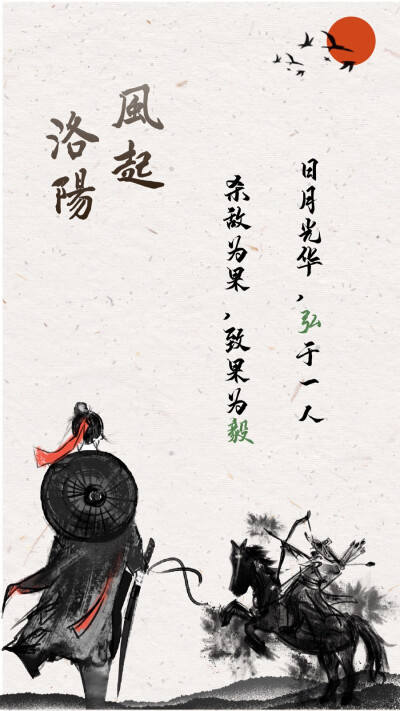 風起
洛陽
日月光华，弘于一人
杀敌为果，致果为毅